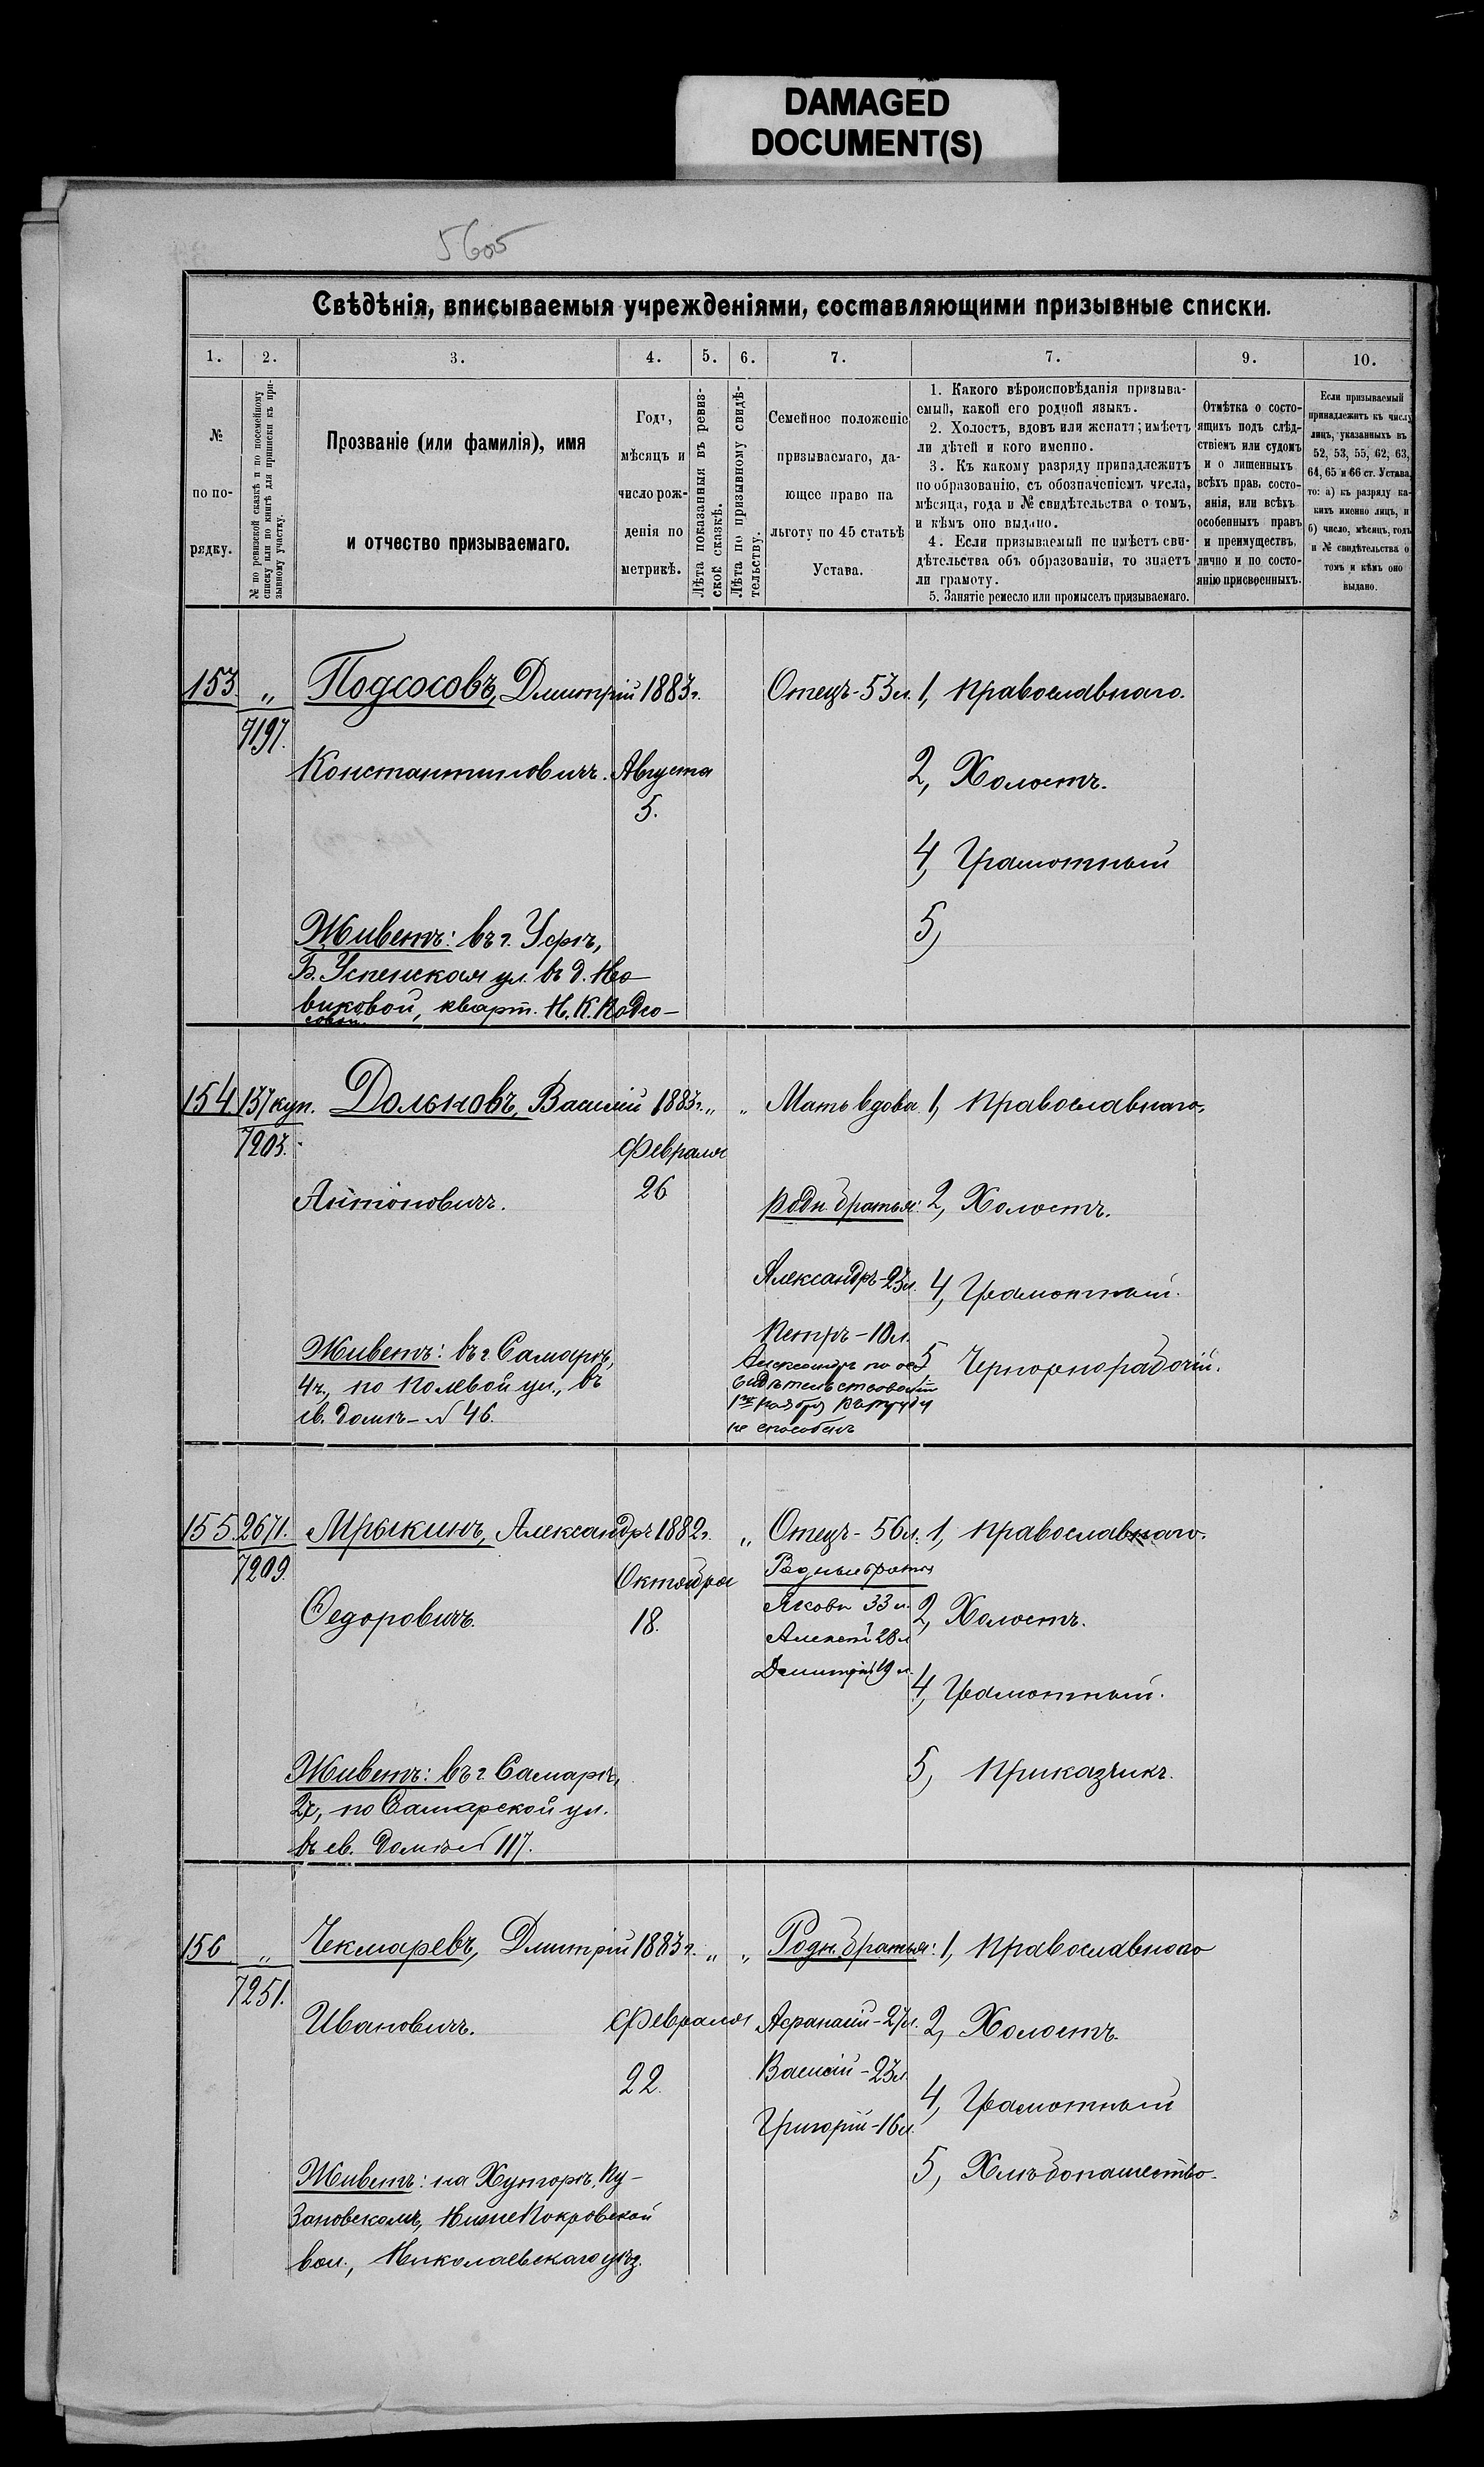 DAMAGED
DOCUMENT(S)
5605
Свѣдѣнія, вписываемыя учрежденіями, составляющими призывные списки.
1. 2. 3. 4. 5. 6. 7. 7. 9. 10.
№
по по-
рядку.
№ по ревизской сказкѣ и по посемейному
списку или по книгѣ для приписки къ при-
зывному участку.
Прозваніе (или фамилія), имя
и отчество призываемаго.
Годъ,
мѣсяцъ и
число рож-
денія по
метрикѣ.
Лѣта показанныя въ ревиз-
ской сказкѣ.
Лѣта по призывному свидѣ-
тельству.
Семейное положеніе
призываемаго, да-
ющее право на
льготу по 45 статьѣ
Устава.
1. Какого вѣроисповѣданія призыва-
емый, какой его родной языкъ.
2. Холостъ, вдовъ или женатъ; имѣетъ
ли дѣтей и кого именно.
3. Къ какому разряду принадлежитъ
по образованію, съ обозначеніемъ числа,
мѣсяца, года и № свидѣтельства о томъ,
и кѣмъ оно выдано.
4. Если призываемый не имѣетъ сви-
дѣтельства объ образованіи, то знаетъ
ли грамоту.
5. Занятіе ремесло или промыселъ призываемаго.
Отмѣтка о состо-
ящихъ подъ слѣд-
ствіемъ или судомъ
и о лишенныхъ
всѣхъ прав. состо-
янія, или всѣхъ
особенныхъ правъ
и преимуществъ,
лично и по состо-
янію присвоенныхъ.
Если призываемый
принадлежитъ къ числу
лицъ, указанныхъ въ
52, 53, 55, 62, 63,
64, 65 и 66 ст. Устава,
то: а) къ разряду ка-
кихъ именно лицъ, и
б) число, мѣсяцъ, годъ
и № свидѣтельства о
томъ и кѣмъ оно
выдано.
153 " Подсосовъ, Дмитрій 1883 г. Отецъ - 53 л. 1, Православнаго.
7197.
Константиновичъ. Августа 2, Холостъ.
5.
4, Грамотный
Живетъ: въ г. Уфѣ, 5,
Б. Успенская ул. въ д. Но-
виковой, кварт. Н. К. Подсо-
совой.
154 137 куп. Дольновъ, Василій 1883 г. " " Мать вдова 1, Православнаго.
7203. Февраля
Антоновичъ. 26 родн. братья: 2, Холостъ.
Александръ - 23 л. 4, Грамотный.
Петръ - 18 л.
Живетъ: въ г. Самарѣ, Александръ по 5 Чернорабочій.
4 ч., по Полевой ул., въ
св. домѣ - № 46.
не способенъ
155. 2671. Мрыкинъ, Александръ 1882 г. " Отецъ - 56 л. 1, Православнаго.
7209. Октября Родные братья
Федоровичъ. 18. Яковъ 33 л. 2, Холостъ.
Алексѣй 28 л
Дмитрій 19 л. 4, Грамотный.
Живетъ: въ г. Самарѣ, 5, Приказчикъ.
2 ч, по Самарской ул.
въ св. домѣ № 117.
156 " Чекмаревъ, Дмитрій 1883 г. " " Родн. братья: 1, Православнаго
7251.
Ивановичъ. Февраля Афанасій - 27 л. 2, Холостъ.
22. Василій - 23 л.
4, Грамотный
Григорій - 16 л.
Живетъ: на Хуторѣ Пу- 5, Хлѣбопашество.
зановскомъ, НижнеПокровской
вол., Николаевскаго уѣз.